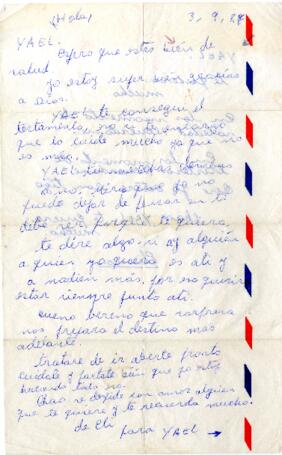 (Hola) 3, 9, 87
YAEL.
Espero que estes bien de
salud.
yo estoy super bien gracias
a Dios.
YAEL te consegui el
testamento, no
que lo cuide mucho ya que no
es mio.
YAEL
amo, yo no
puedo dejar de pensar en ti
debe ser porque te quiero,
te dire algo, si ay alguien
a quien yo quiero es ati y
a nadien más, por eso quisiera
estar siempre junto ati.
bueno veremo que sorpresa
nos prepara el destino mas
adelante.
tratare de ir aberte pronto
cuidate y portate bien que yo estoy
haciendo todo
Chao se despide con amor alguien
que te quiere y te recuerda mucho.
de Eli
para YAEL →